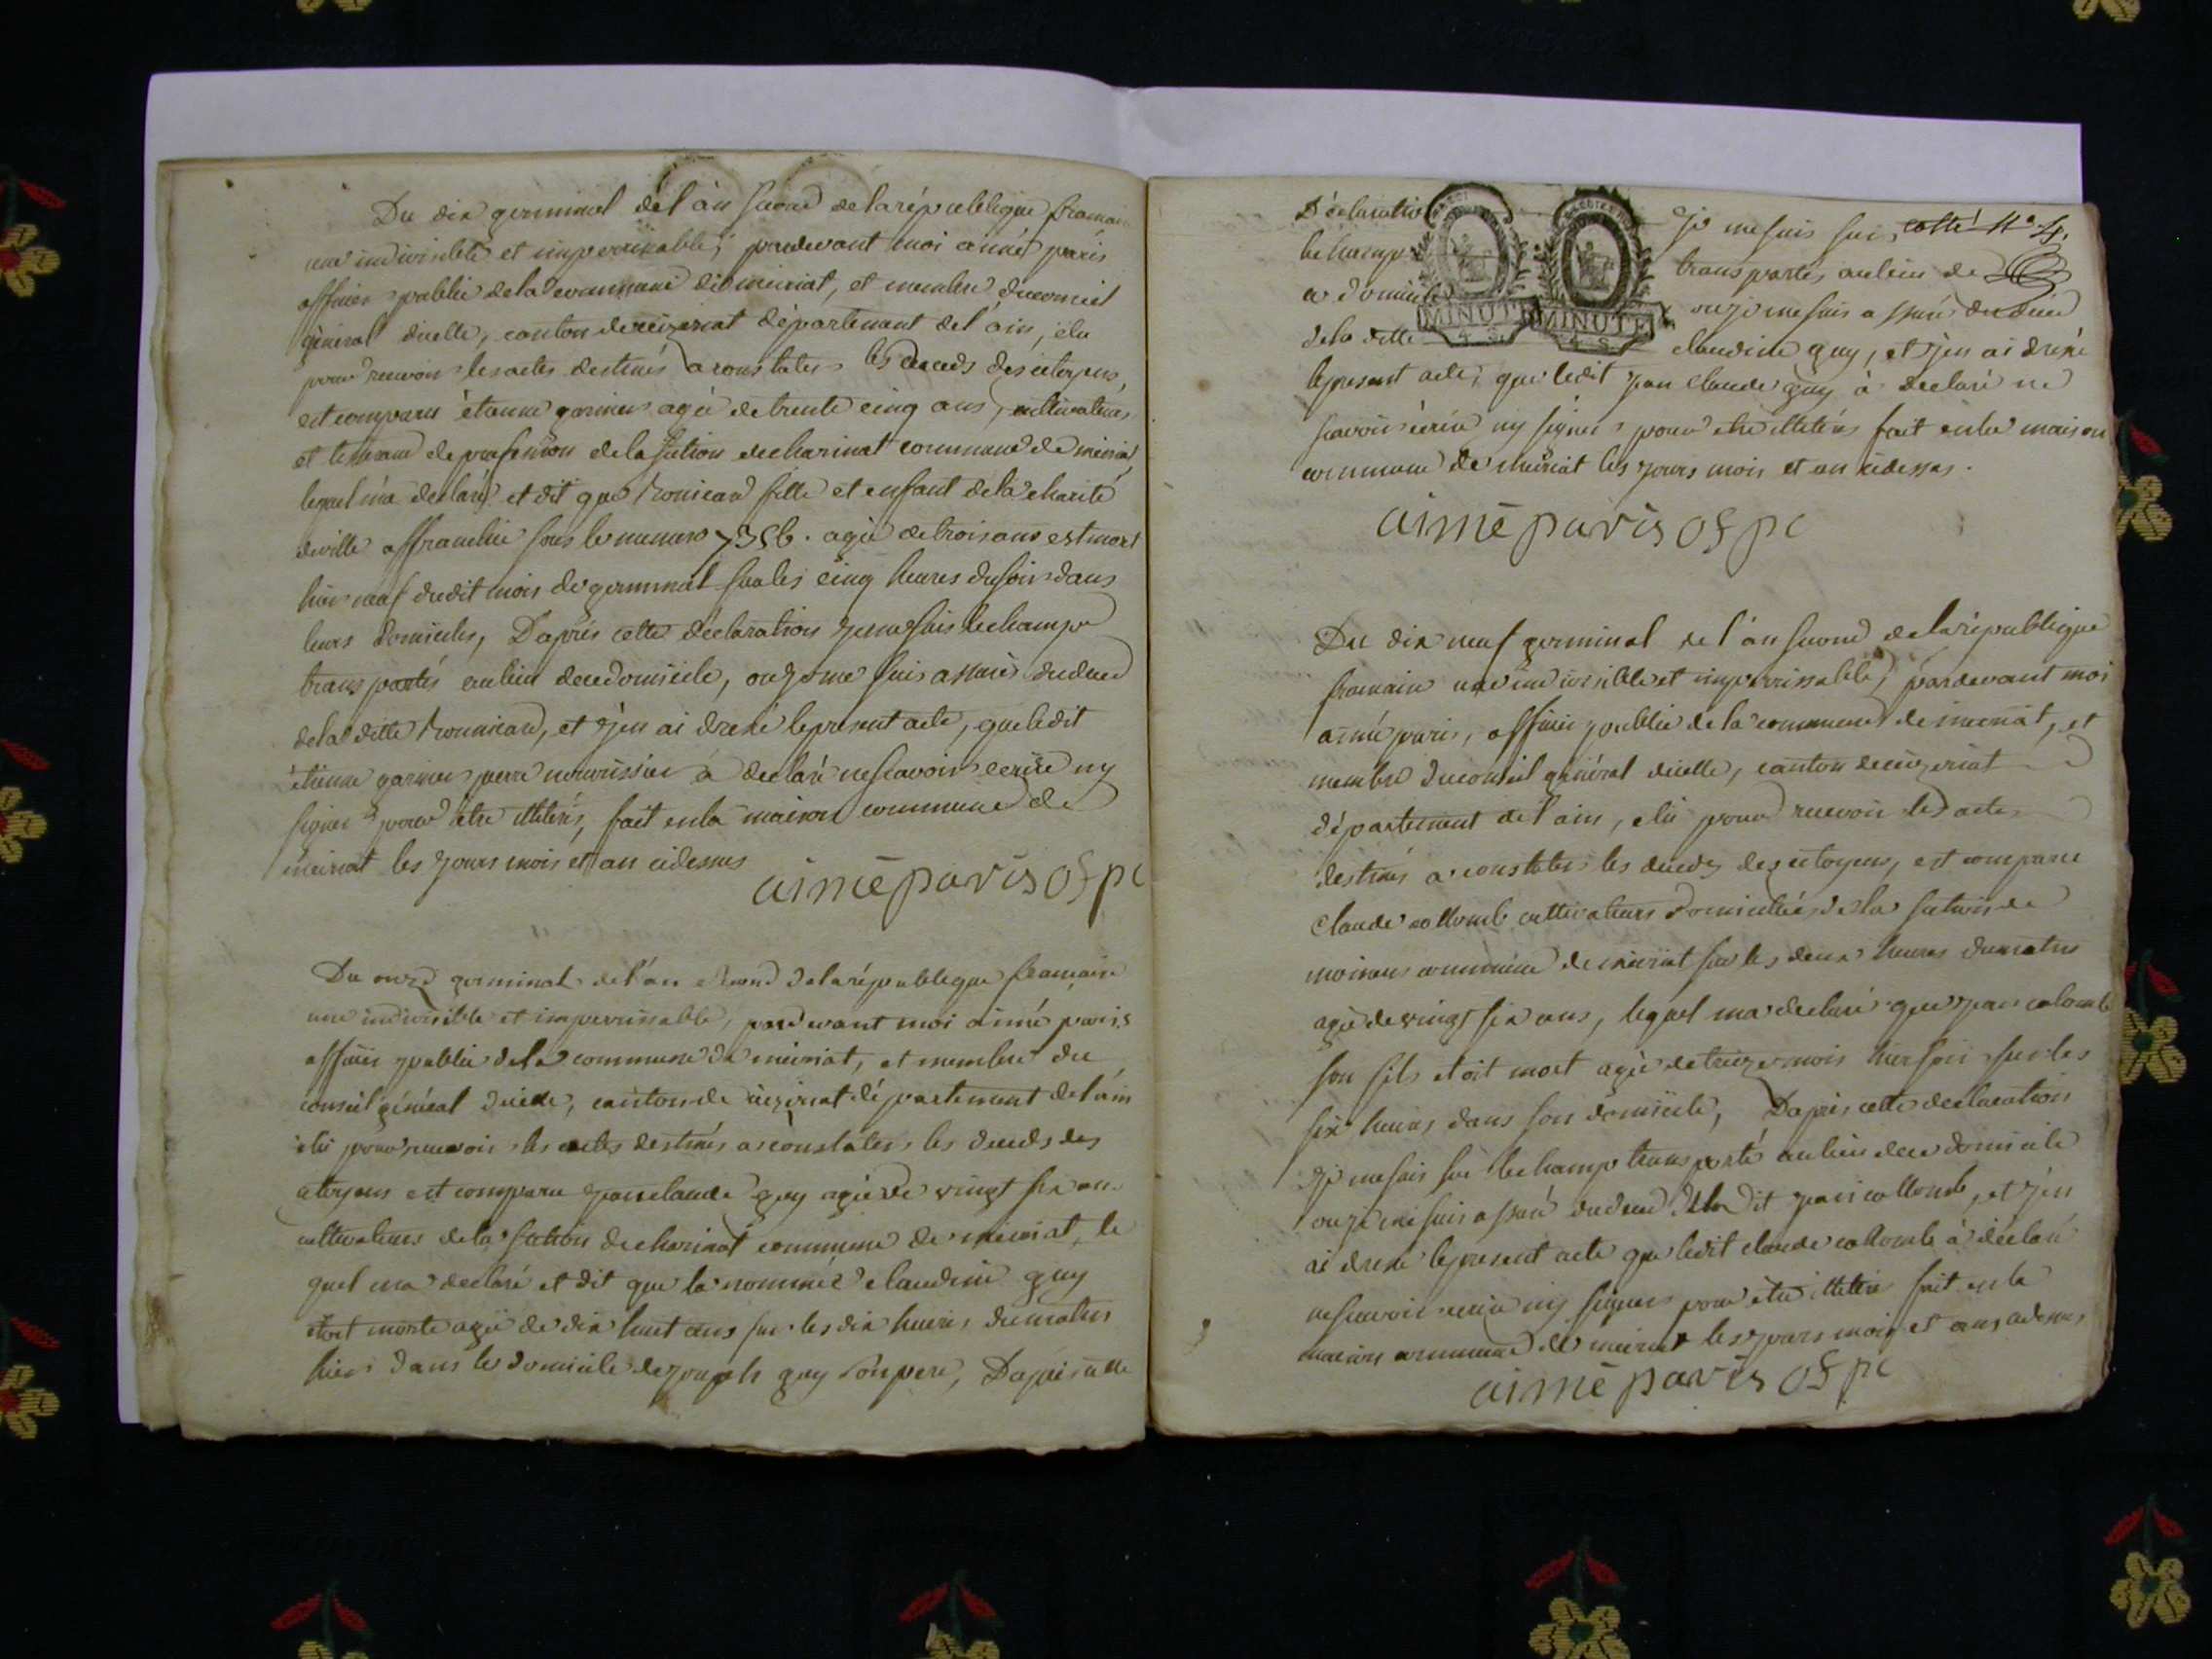 Du dix germinal de l'an second de la république francai
une indivisible et imperrissable, pardevant moi aimé paris
officier public de la commune de meiriat, et membre du conseil
général dicelle, canton de ceizeriat département de l'ain, élu
pour recevoir les actes destinés a constater les deceds des citoyens,
est comparu étienne garinet agée de trente cinq ans, cultivateur
et tisserand de profession de la section de charinat commune de meiriat
lequel m'a declaré et dit que fille et enfant de la charité
deville affranchie sous le numero 7356. agée de trois ans est mort
hier neuf dudit mois de germinal sur les cinq heures du soir dans
leurs domiciles, D'après cette déclaration je me suis sur le champ
transportés au lieu de ce domicile, ou je me suis assuré du deced
de la ditte, et j'en ai dressé le present acte, que ledit
étienne garinet pere nourrissier à declaré ne scavoir ecrire ny
signer pour être illiterés, fait en la maison commune de
meiriat les jours mois et an cidessus
aimé paris of pc
Du onze germinal de l'an second de la république francaise
une indivisible et imperrissable, pardevant moi aimé paris
officier public de la commune de meiriat, et membre du
conseil général dicelle, canton de ceizeriat département de l'ain
élu pour recevoir les actes destinés a constater les deceds des
citoyens est comparu jean claude guy agée de vingt six ans
cultivateur de la section de charinat commune de meiriat, le
quel ma declaré et dit que la nommée claudine guy
étoit morte agée de dix huit ans sur les dix heures du matin
hier dans le domicile de joseph guy son pere, D'après cette
Déclaration Je me suis sur, cotté N° 4.
le champ transportés au lieu de
ce domicile ou je me suis assuré du deced
de la ditte claudine guy, et j'en ai dressé
MINUTE 4. S. MINUTE 4. S.
le present acte, que ledit jean claude guy à declaré ne
scavoir écrire ny signer pour etre illiterés fait en la maison
commune de meiriat les jours mois et an cidessus.
aimé paris of pc
Du dix neuf germinal de l'an second de la république
francaise une indivisible et imperrissable, pardevant moi
aimé paris, officier public de la commune de meiriat, et
membre du conseil général dicelle, canton de ceizeriat
département de l'ain, elu pour recevoir les actes
destinés a constater les deceds des citoyens, est comparu
Claude collomb cultivateurs domiciliés de la section de
commune de meiriat sur les deux heures du matin
agée de vingt six ans, lequel ma declaré que jean colomb
son fils etoit mort agée de treize mois hier soir sur les
six heures dans son domicile, D'apres cette declaration
je me suis sur le champ transporté au lieu de ce domicile
ou je me suis assuré du deced du dit jean collomb, et j'en
ai dressé le present acte que ledit claude collomb à déclaré
ne scavoir ecrire ny signer pour etre illiteré fait en la
maison commune de meiriat les jours mois et ans
aimé paris of pc